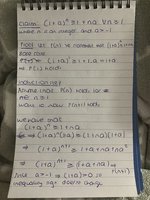 Claim: (1+a)ⁿ ≥ 1+na ∀n≥1
where n is an integer and a>-1
Proof: Let P(n) = (1+a)ⁿ ≥ 1+na
Base case
P(1) ⇒ (1+a)¹ ≥ 1+1.a = 1+a
⇒ P(1) holds.
Induction step
Assume that P(n) holds for a
n ≥ 1
Want to show P(n+1) holds
We have that
(1+a)ⁿ ≥ 1+na
⇒ (1+a)ⁿ(1+a) ≥ (1+na)(1+a)
⇒ (1+a)ⁿ⁺¹ ≥ 1+a+na+na²
⇒ (1+a)ⁿ⁺¹ ≥ 1+a+na
⇒ P(n+1)
Since a>-1 ⇒ (1+a)>0 so
inequality sign doesn't change